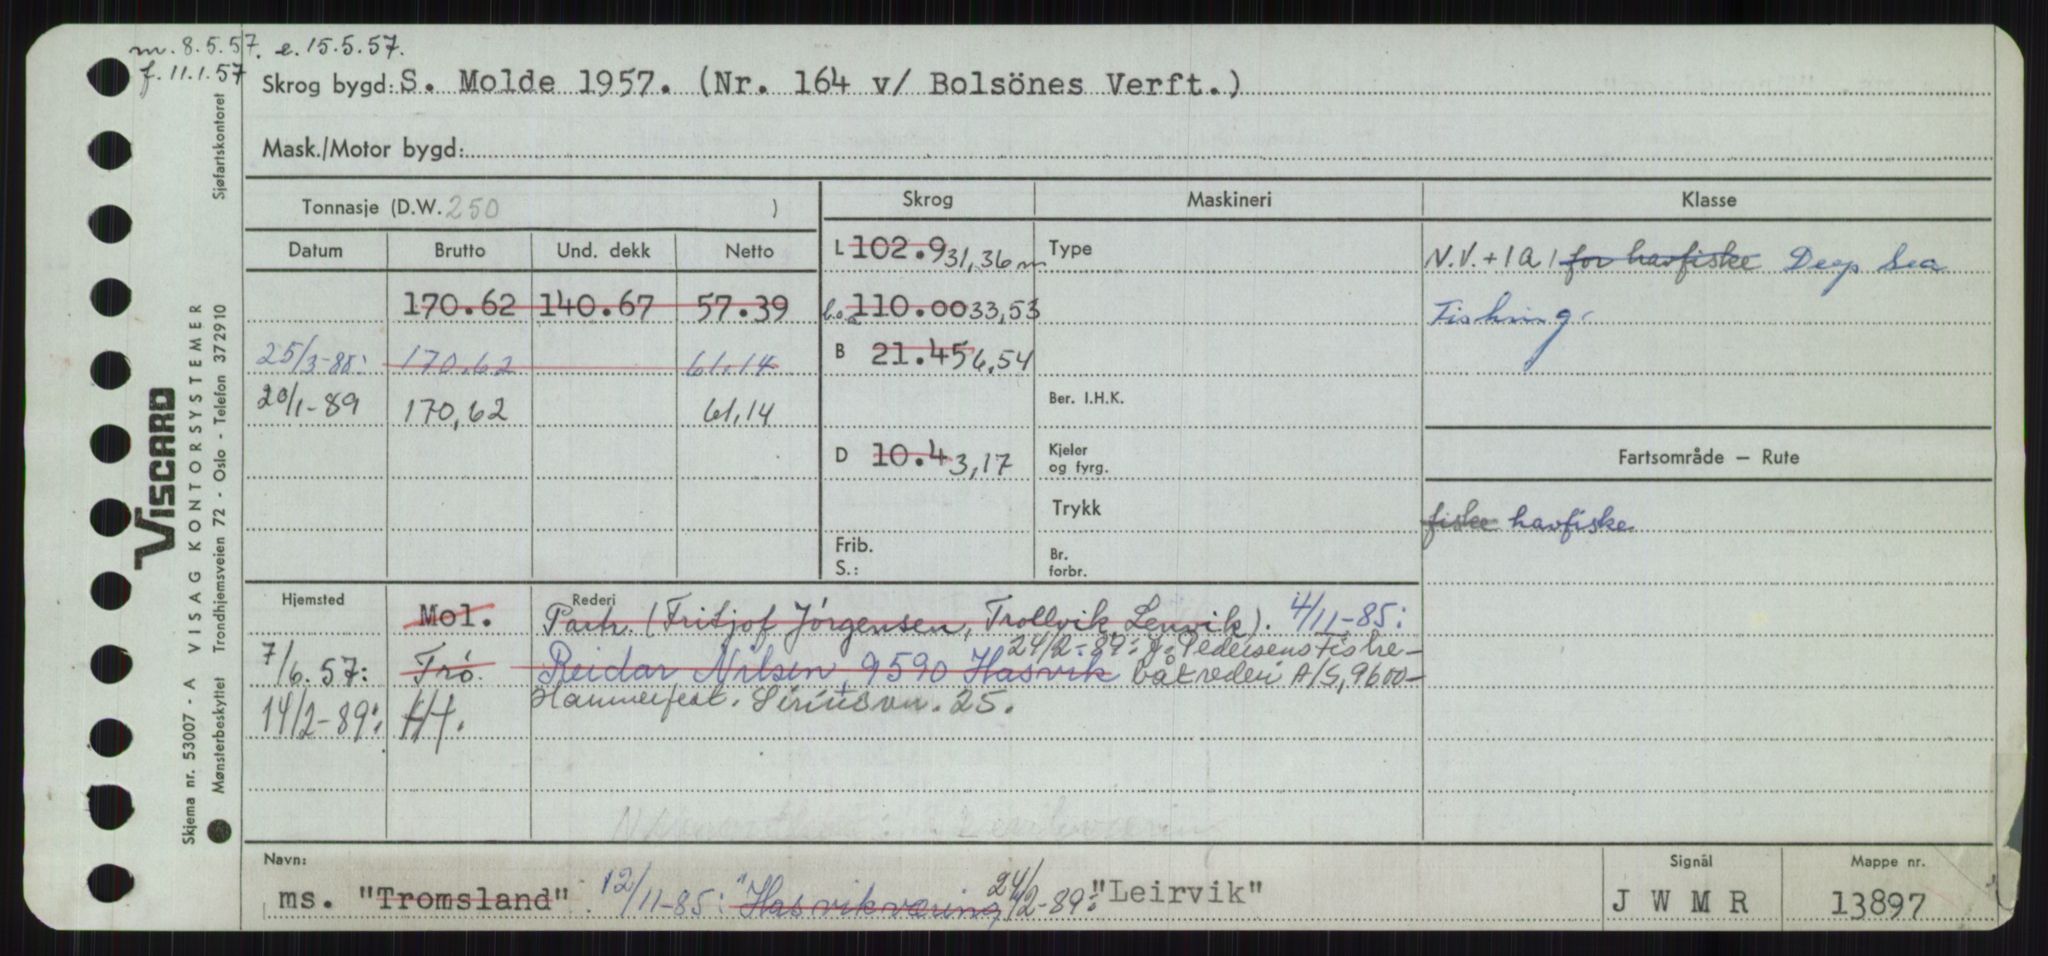 m. 8.5.57. e. 15.5.57.
f. 11.1.57
Skrog bygd: S. Molde 1957. (Nr. 164 v/ Bolsönes Verft.)
Mask./Motor bygd:
Tonnasje (D.W. 250 )
Skrog
Maskineri
Klasse
Datum Brutto Und. dekk Netto
L 102.9 31,36 m
Type
N.V. + 1 A 1 for havfiske Deep Sea
170.62 140.67 57.39
l.o.a 110.00 33,53
Fishing.
25/3-88: 170,62 61.14
B 21.45 6,54
20/1-89 170,62 61,14
Ber. I.H.K.
D 10.4 3,17
Kjeler
og fyrg.
Fartsområde — Rute
Trykk
fiske havfiske
Frib.
S.:
Br.
forbr.
Hjemsted
Rederi
Mol. Partr. (Fritjof Jörgensen, Trollvik, Lenvik). 4/11-85:
7/6.57: Trö. Reidar Nilsen, 9590 Hasvik 24/2-89: J. Pedersens Fiske-
båtrederi A/S, 9600-
14/2-89: H.f. Hammerfest. Siriusvn. 25.
Navn:
ms. "Tromsland" 12/11-85: "Hasvikværing" 24/2-89: "Leirvik"
Signål
J W M R
Mappe nr.
13897
VISCARD
Skjema nr. 53007 - A VISAG KONTORSYSTEMER
Mønsterbeskyttet Trondhjemsveien 72 - Oslo - Telefon 372910
Sjøfartskontoret